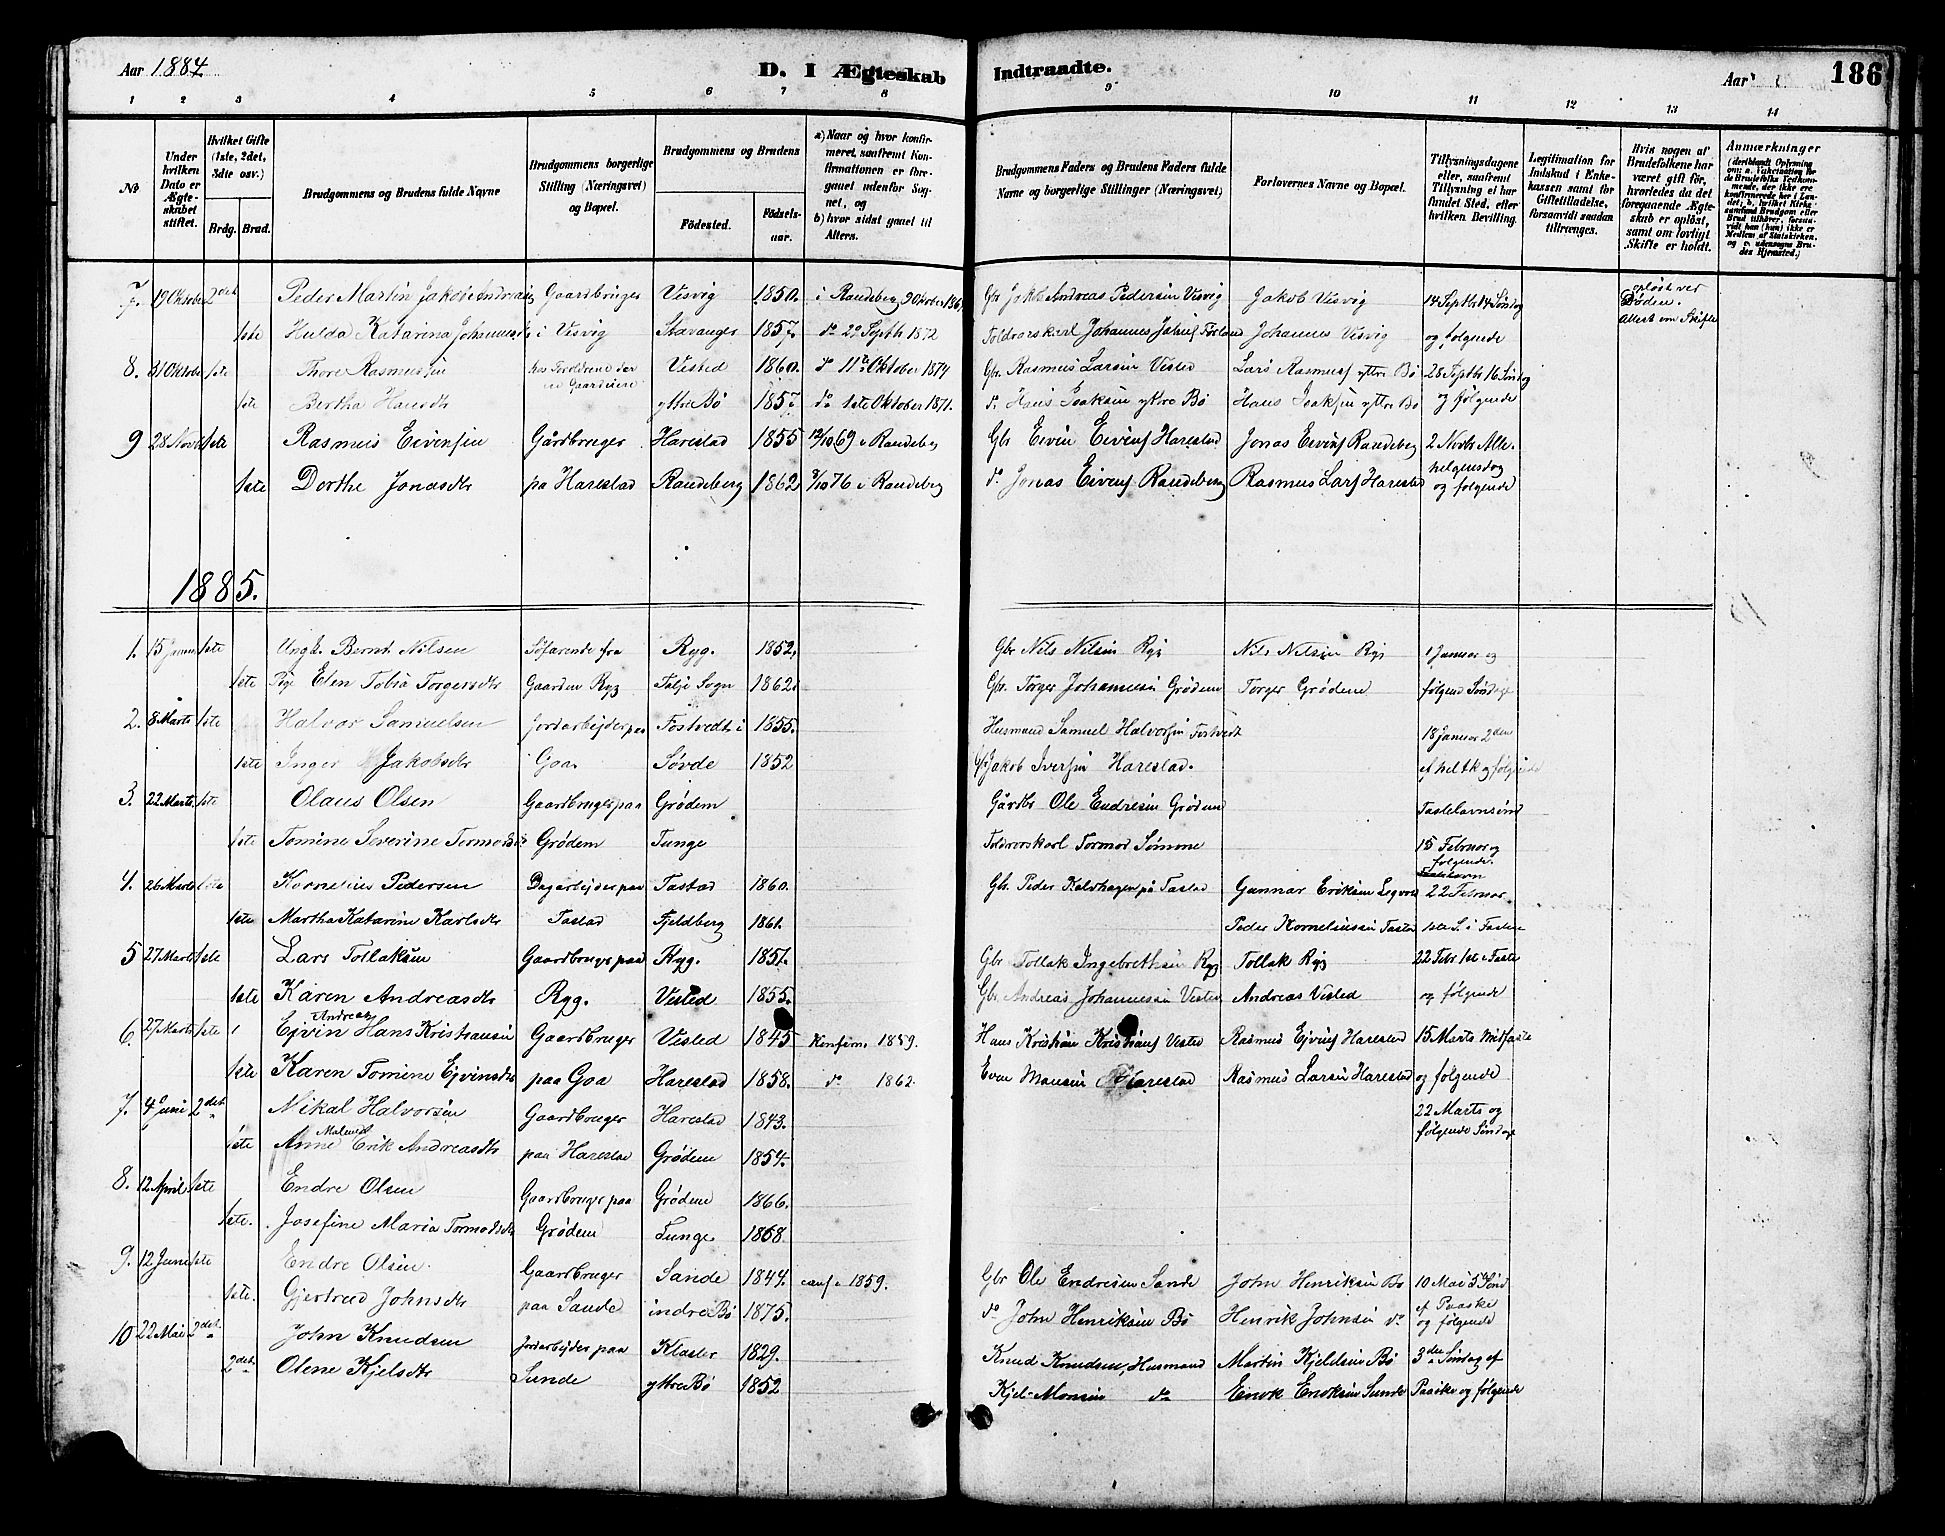 Aar 1884.
D. I Ægteskab Indtraadte.
Aar
186
1 2 3 4 5 6 7 8 9 10 11 12 13 14
No
Under hvilken Dato er Ægteskabet stiftet.
Hvilket Gifte (1ste, 2det, 3dte osv.)
Brdg. Brud.
Brudgommens og Brudens fulde Navne
Brudgommens borgerlige Stilling (Næringsvei) og Bopæl.
Brudgommens og Brudens
Fødested.
Fødselsaar.
a) Naar og hvor konfirmeret, saafremt Konfirmationen er foregaaet udenfor Sognet, og
b) hvor sidst gaaet til Alters.
Brudgommens Faders og Brudens Faders fulde Navne og borgerlige Stillinger (Næringsvei)
Forlovernes Navne og Bopæl.
Tillysningsdagene eller, saafremt Tillysning ei har fundet Sted, efter hvilken Bevilling.
Legitimation for Indskud i Enkekassen samt for Giftetilladelse, forsaavidt saadan tiltrænges.
Hvis nogen af Brudefolkene har været gift før, hvorledes da det foregaaende Ægteskab er opløst, samt om lovligt Skifte er holdt.
Anmærkninger
7. 19 Oktober 2det Peder Martin Jakob Andreas Gaardbruger Visvig 1850. i Randeberg Gbr Jakb Andreas Pedersen Visvig Jakob Visvig 14 Septbr 14 Søndag opløst ved Døden.
1ste Hulda Katarina Johannesdtr i Visvig Stavanger 1857. do 20 Septbr 1872 Toldrorskarl Johannes Johnsf Førland Johannes Visvig og følgende
8. 31 Oktober 1ste Thore Rasmussen hos Forældrene Vistad 1860. do 11te Oktober 1874 Gbr. Rasmus Larsen Visted Lars Rasmusf yttre Bø 28 Septbr 16 Søndag
1ste Bertha Hansdtr yttre Bø 1857. do 1ste Oktober 1871. do Hans Isaksen yttre Bø Hans Isaksen yttre Bø og følgende
9 28 Novbr 1ste Rasmus Eivensen Gårdbruger Harestad 1855 12/10 69 i Randeberg Gbr Eivin Eivinsf Harestad Jonas Eivinsf Randeberg 2 Novbr Allehelgensdag
1ste Dorthe Jonasdtr paa Harestad Randeberg 1862 8/10 76 i Randeberg do Jonas Eivensf Randeberg Rasmus Larsf Harestad og følgende
1885.
1. 15 Januar 1ste Ungk. Bernt Nilsen Søfarende fra Ryg. 1852, Gbr Nils Nilsen Ryg Nils Nilsen Ryg 1 Januar og
1ste Pige Elen Tobia Torgersdtr Gaarden Ryg Talje Sogn 1862. Gbr. Torger Johannesen Grødem Torger Grødem følgend Søndage
2. 8 Marts 1ste Halvor Samuelsen Jordarbeider paa Fostvedt i 1855. Husmand Samuel Halvorsen Fostvedt 18 Januar 2den
1ste Inger Jakobsdtr Goa Søvde 1852 Jakob Iversen Harestad. ef heltk og følgende
3. 22 Marts 1ste Olaus Olsen Gaardbruger paa Grødem Gårdbr Ole Endresen Grødem Fastelavnsønd
1ste Tomine Severine Tormodsdtr Grødem Tunge Toldrorskarl Tormod Sømme 15 Februar og følgende.
4. 26 Marts 1ste Kornelius Pedersen Dagarbeider paa Tastad 1860. Gbr. Peder Kalvhagen på Tastad Gunnar Eriksen 22 Februar.
1ste Martha Katarine Karlsdtr Tastad Fjeldberg 1861. Peder Korneliussen Tastad 1ste S. i Fasten
5 27 Marts 1ste Lars Tollaksen Gaardbruger paa Ryg. 1857. Gbr Tollak Ingebrethsen Ryg Tollak Ryg 22 Febr 1st i Faste
1ste Karen Andreasdtr Ryg. Visted 1855. Gbr. Andreas Johannesen Visted Andreas Visted og følgende
6. 27 Marts 1ste Ejvin Andreas Hans Kristiansen Gaardbruger Visted 1845 Konfirm. 1859. Hans Kristian Kristiansf Visted Rasmus Ejvinsf Harestad 15 Marts Midfaste
1ste Karen Tomine Ejvinsdtr paa Goa Harestad 1858. do 1862. Even Monsen Harestad Rasmus Larsen Harestad og følgende
7. 4 Juni 2det Nikal Halvorsen Gaardbruger Harestad 1843. 22 Marts og
1ste Anne Malene Erik Andreasdtr paa Harestad Grødem 1854. følgende Søndage
8. 12 April 1ste Endre Olsen Gaardbruger paa Grødem 1866.
1ste. Josefine Maria Tormodsdtr Grødem Tunge 1858.
9. 12 Juni 1ste Endre Olsen. Gaardbruger Sande 1844. conf. 1859. Gbr Ole Endresen Sande John Henriksen Bø 10 Mai 5 Sønd
1ste. Gjertrud Johnsdtr paa Sande indre Bø 1875. do John Henriksen Bø Henrik Johnsen do ef Paaske og følgende
10 22 Mai 2det. John Knudsen Jordarbeider paa Kloster 1829. Knud Knudsen, Husmand Martin Kjeldsen Bø 3die Søndag ef
2det Olene Kjelsdtr Sunde yttre Bø 1852 Kjel Monsen do Enok Enoksen Sunde Paaske og følgende